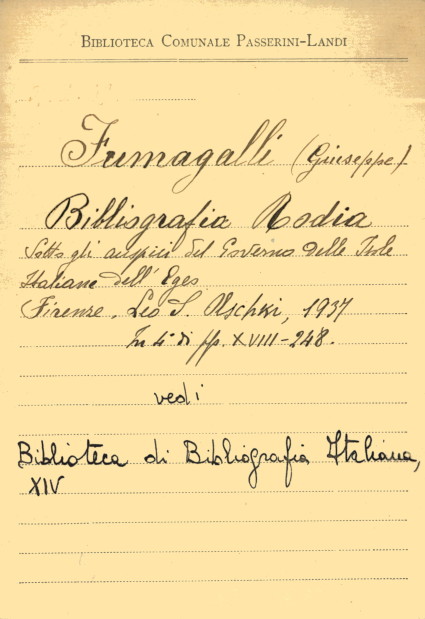 BIBLIOTECA COMUNALE PASSERINI-LANDI
Fumagalli (Giuseppe)
Bibliografia Rodia
Sotto gli auspici del Governo delle Isole
Italiane dell'Egeo
Firenze. Leo S. Olschki, 1937
In 4° di pp. XVIII-248.
vedi
Biblioteca di Bibliografia Italiana,
XIV